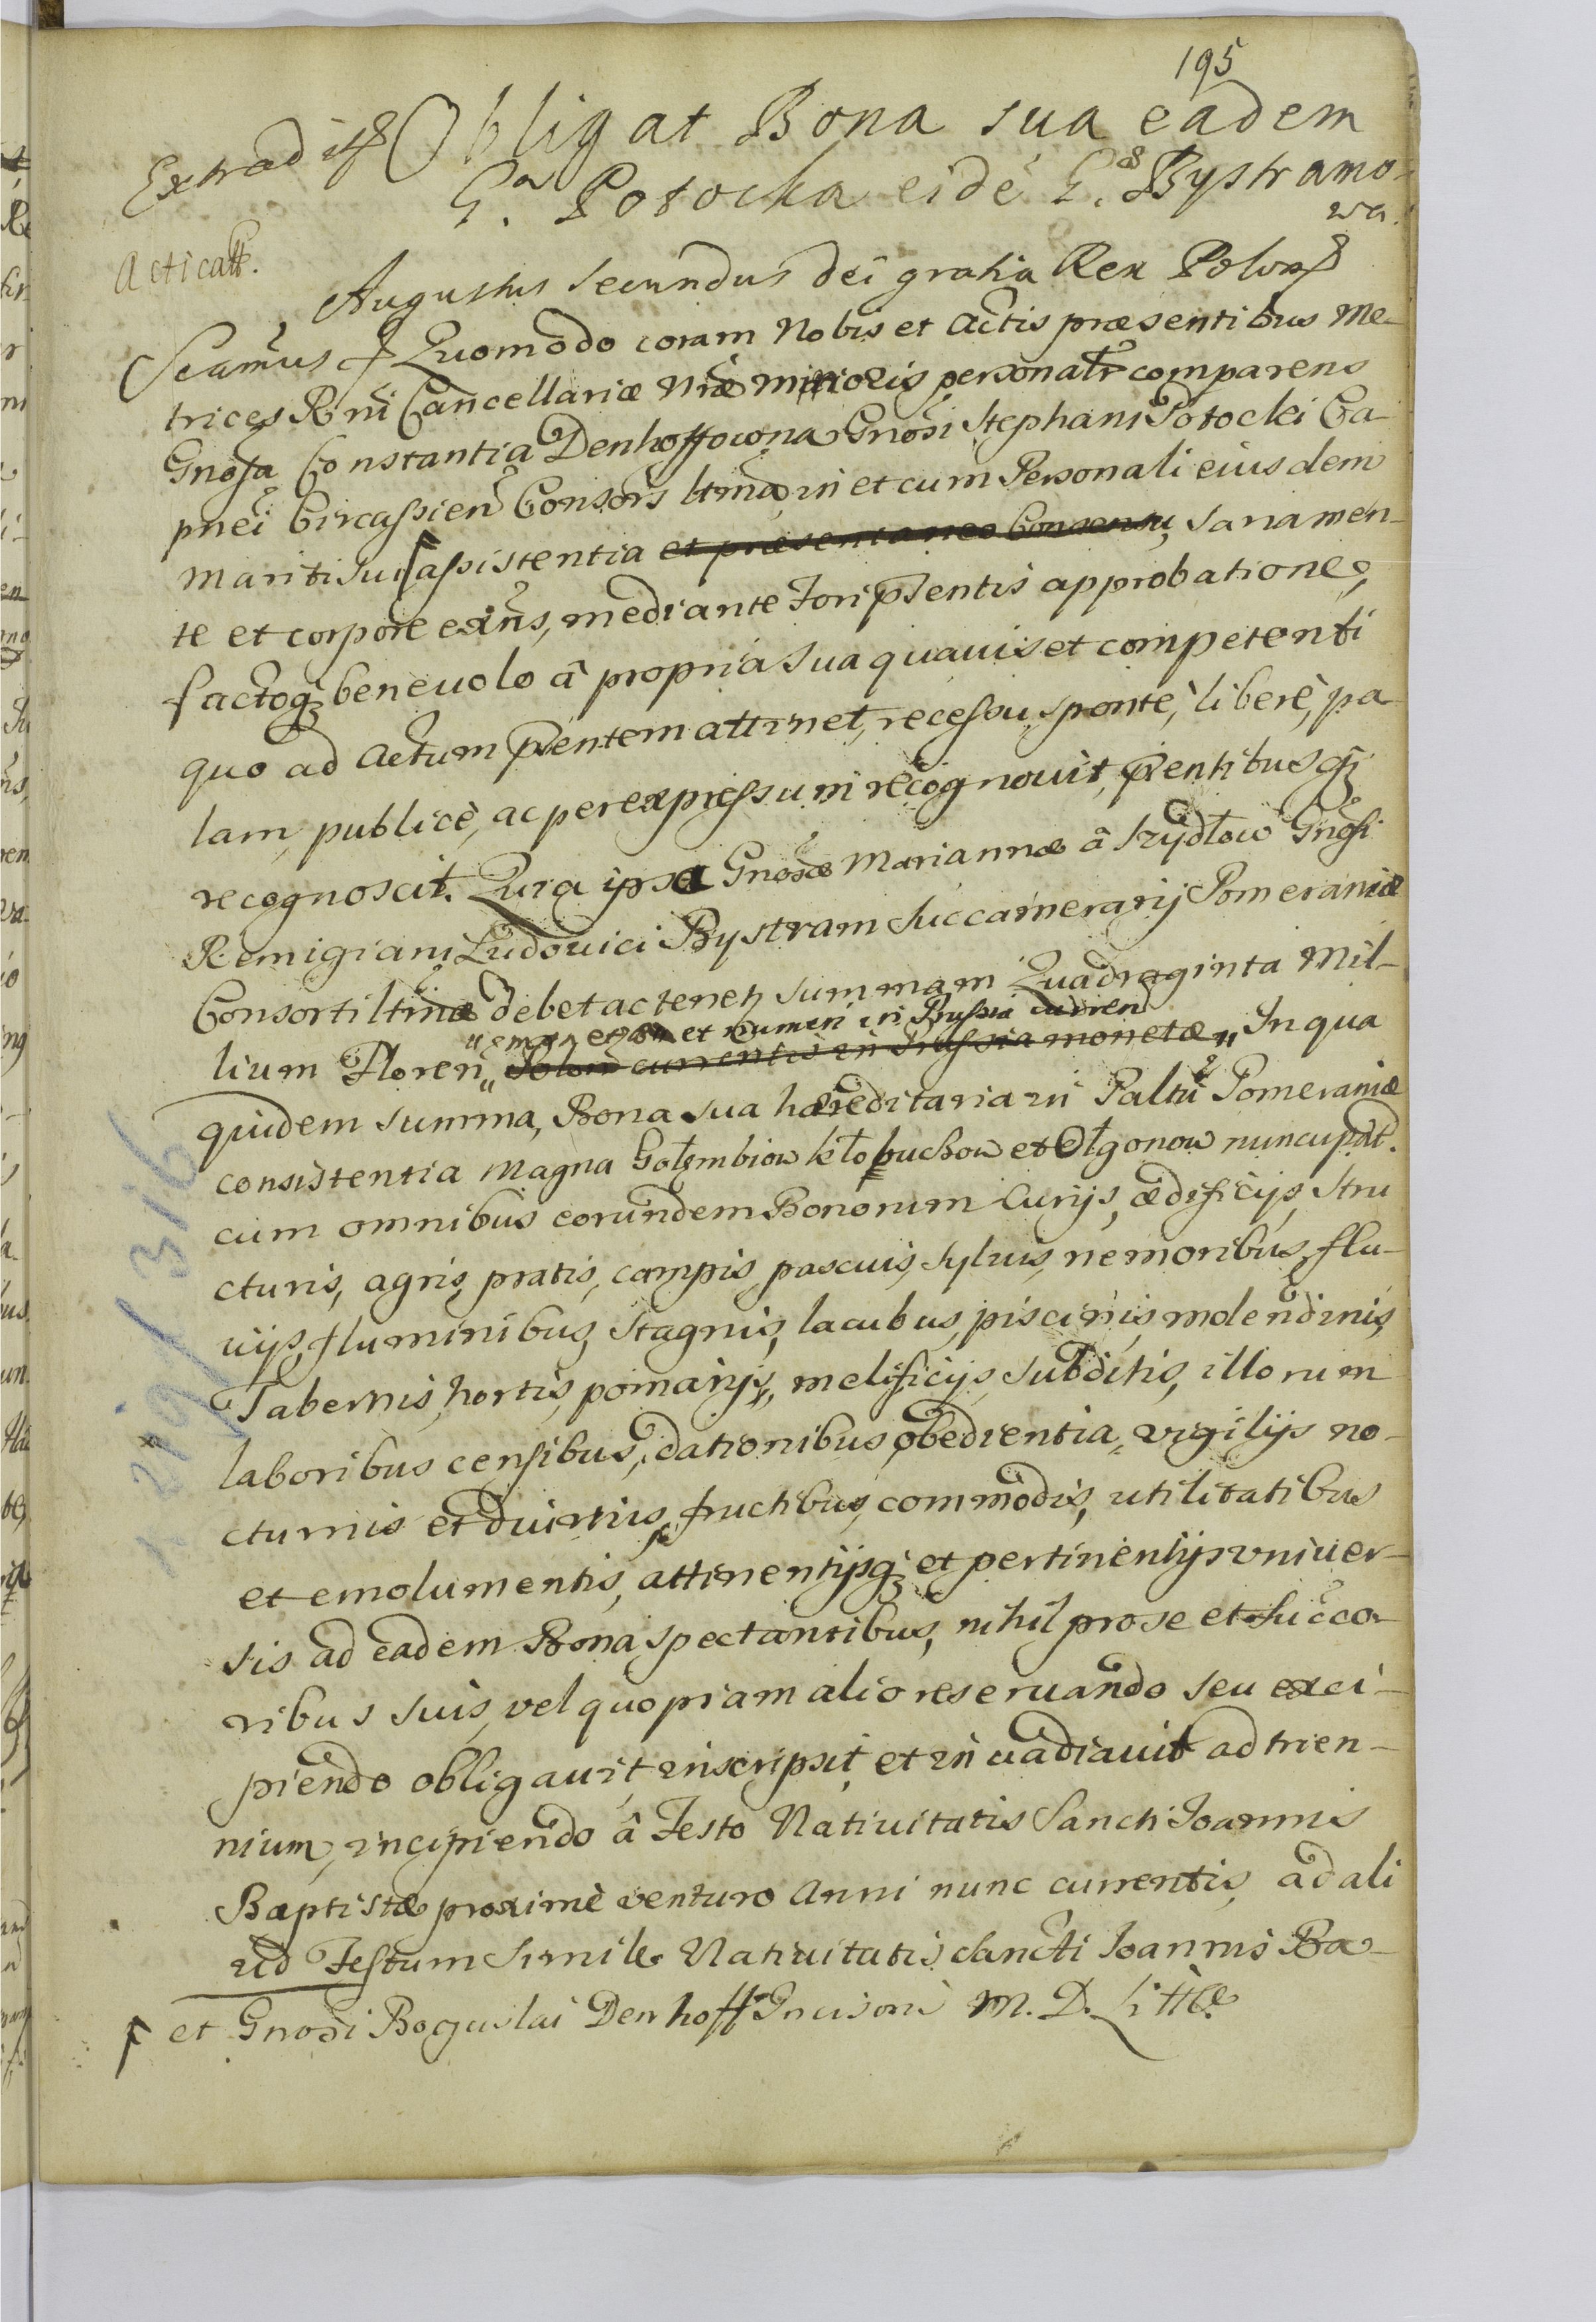 195
Extradit Obligat Bona sua eadem
G.a Potocka eidē G. Bystramo-
wa.
Acticatt.
Augustus Secundus dei gratia Rex Polon
Quomodo coram Nobis et Actis præsentibus Me-
trices Rni Cancellariæ Nræ minoris, personatr comparens
Gnosa Constantia Denhoffowna Gnosi Stephani Potocki Ca-
pnei Circassien Consors ltma, in et cum Personali eiusdem
mariti sui ſ assistentia et præsentaneo Consensu, sana men-
te et corpore exñs, mediante Fori pſentis approbatione,
factoq; beneuolo â propria sua quauis et competenti
quo ad Actum pſentem attinet, recessu, sponte, liberè, pa-
lam, publicè, ac per expressum recognouit, pſentibusq;
recognoscit. Quia ipsa Gnosæ Mariannæ â Szydłow Gnosi
Remigiani Ludouici Bystram Succamerarij Pomeraniæ
Consorti ltmæ debet ac tenetr summam Quadraginta Mil-
et numeri in Prussia curren
lium Floren " Polon currentis in Prussia monetæ " In qua
quidem summa, Bona sua hæreditaria in Paltu Pomeraniæ
consistentia Magna Gołembiow kłobuchow et Ołgonow nuncupat.
cum omnibus eorundem Bonorum Curijs, ædificijs, Stru
cturis, agris, pratis, campis, pascuis, syluis, nemoribus, flu-
uijs, fluminibus, Stagnis, lacubus, piscinis, molendinis,
Tabernis, hortis, pomarijs, melificijs, subditis, illorum
laboribus censibus, dationibus, obedientia, vigilijs no-
cturnis et diurnis, fructibus, commodis, utilitatibus
et emolumentis, attinentijsq; et pertinentijs vniuer-
sis ad eadem Bona spectantibus, nihil pro se et Succo-
ribus suis, vel quopiam alio reseruando seu exci-
piendo obligauit, inscripsit, et inuadiauit ad trien-
nium, incipiendo â Festo Natiuitatis Sancti Joannis
Baptistæ proximè venturo Anni nunc currentis, ad ali
ud Festum Simile Natiuitatis Sancti Joannis Ba-
ſ et Gnosi Boguslai Denhoff Incisoris M. D. Littæ